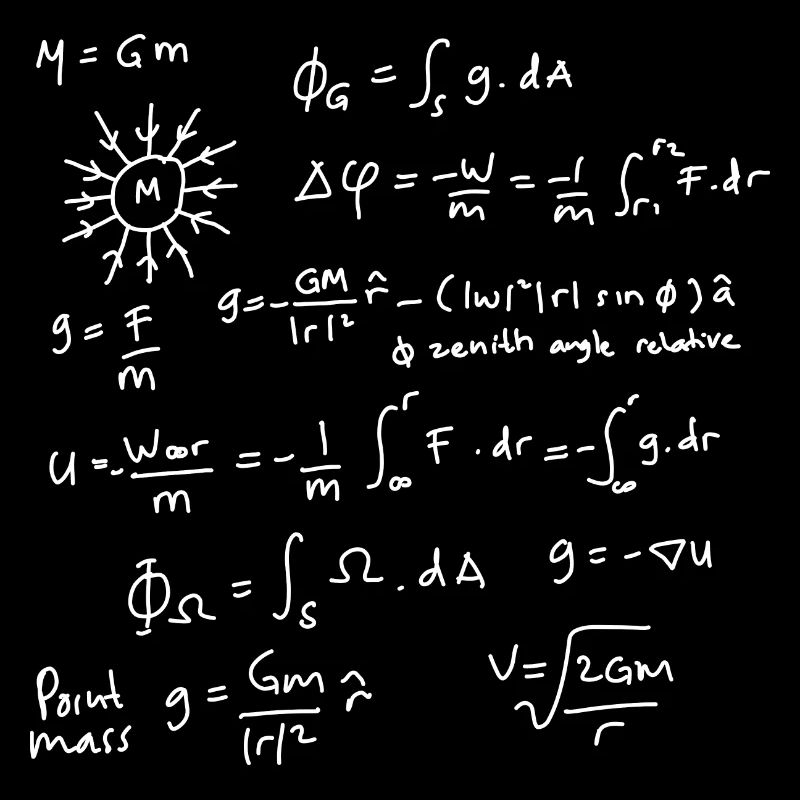 M = Gm
ϕG = ∫S g. dA
M
Δφ = -W/m = -1/m ∫r1^r2 F.dr
g = F/m
g = - GM/|r|² r̂ - (|w|²|r| sin ϕ) â
ϕ zenith angle relative
U = - W∞r/m = - 1/m ∫∞^r F . dr = - ∫∞^r g.dr
ΦΩ = ∫S Ω . dA
g = -∇U
Point
mass
g = Gm/|r|² r̂
V = √2GM/r